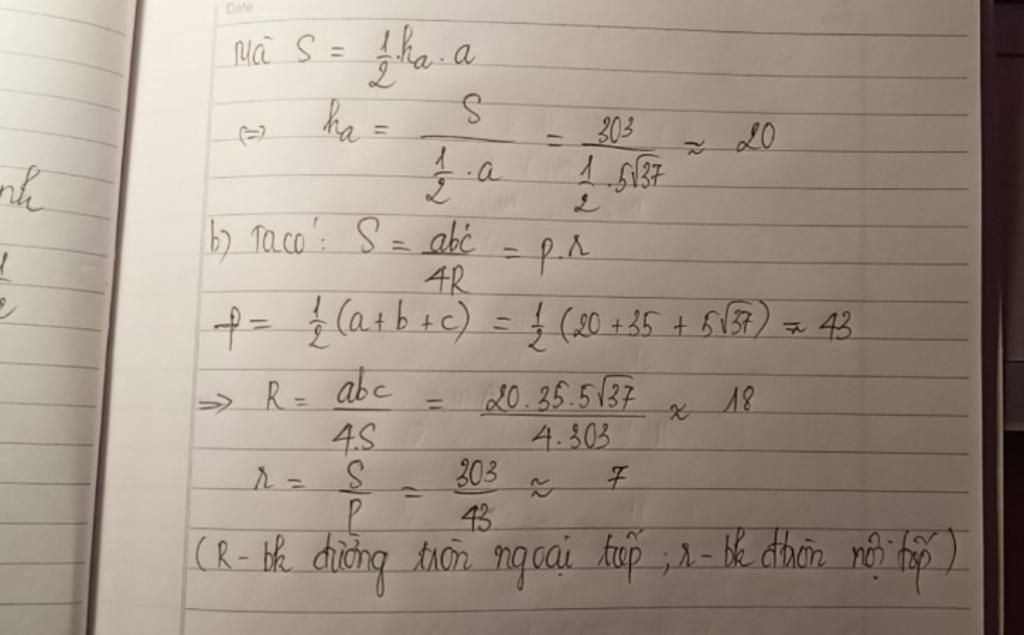 Date
Mà S = 1/2 . ha . a
(=) ha = S / (1/2 . a) = 303 / (1/2 . 5√37) ≈ 20
b) Ta có: S = abc/4R = p.r
p = 1/2 (a + b + c) = 1/2 (20 + 35 + 5√37) ≈ 43
=> R = abc/4.S = 20.35.5√37 / 4.303 ≈ 18
r = S/P = 303/43 ≈ 7
(R - bk đường tròn ngoại tiếp ; r - bk đtròn nội tiếp)
nh